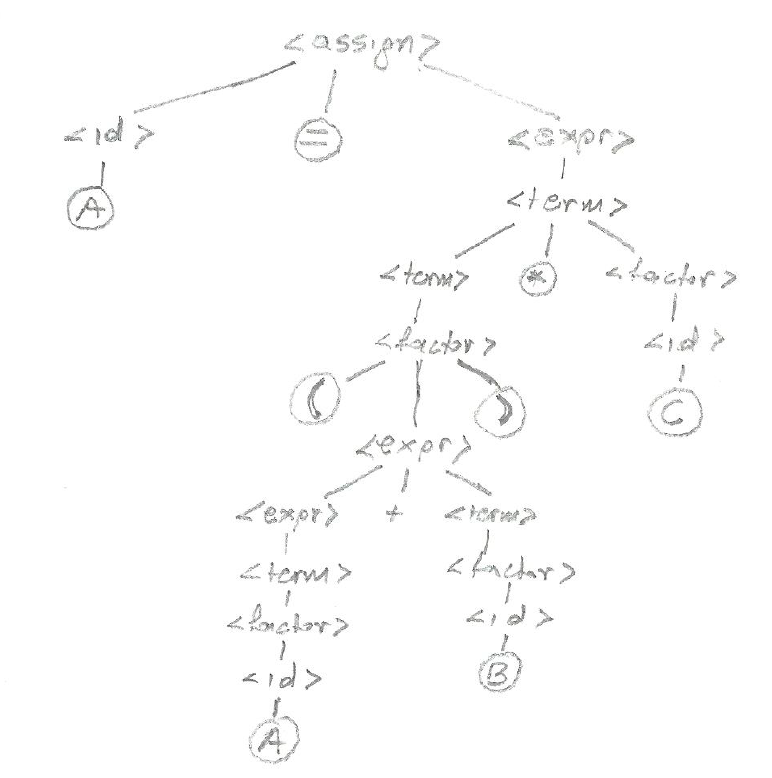 <assign>
<id> = <expr>
A <term>
<term> * <factor>
<factor> <id>
( ) C
<expr>
<expr> + <term>
<term> <factor>
<factor> <id>
<id> B
A